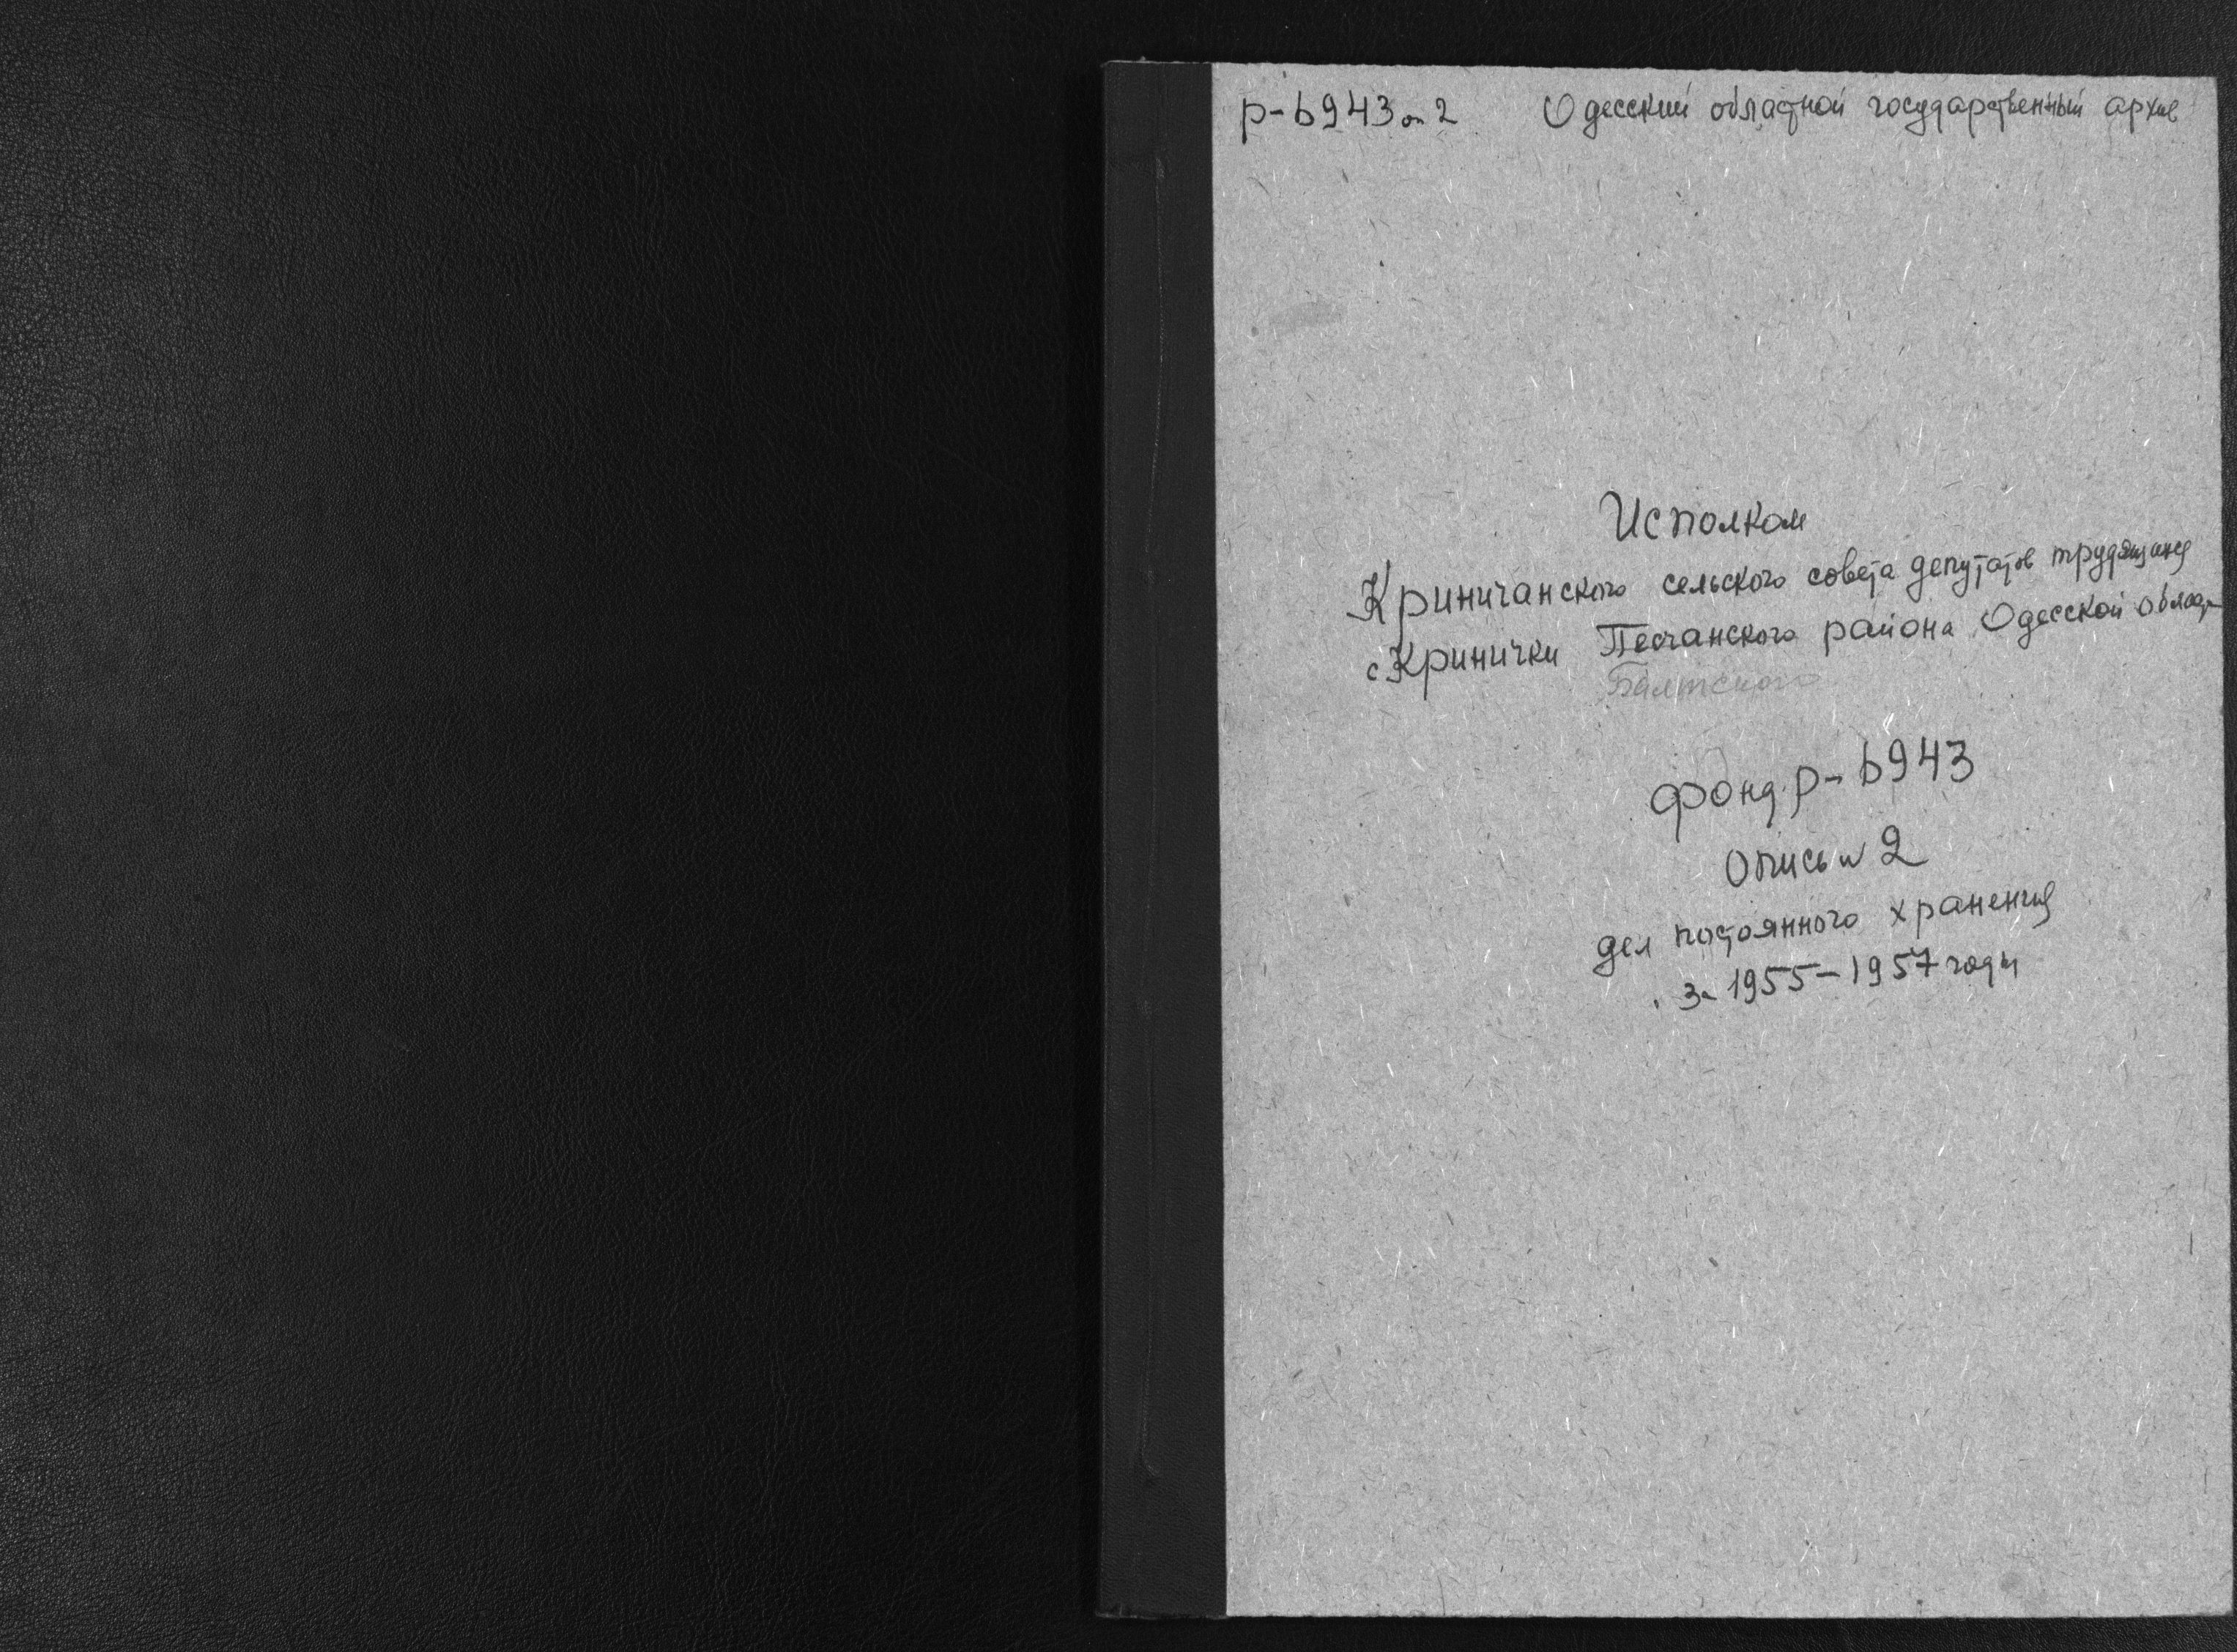 р-6943 оп 2 Одесский областной государственный архив
Исполком
Криничанского сельского совета депутатов трудящихся
с Кринички Песчанского района Одесской област
Балтского
Фонд р-6943
Опись № 2
дел постоянного хранения
за 1955-1957 годы